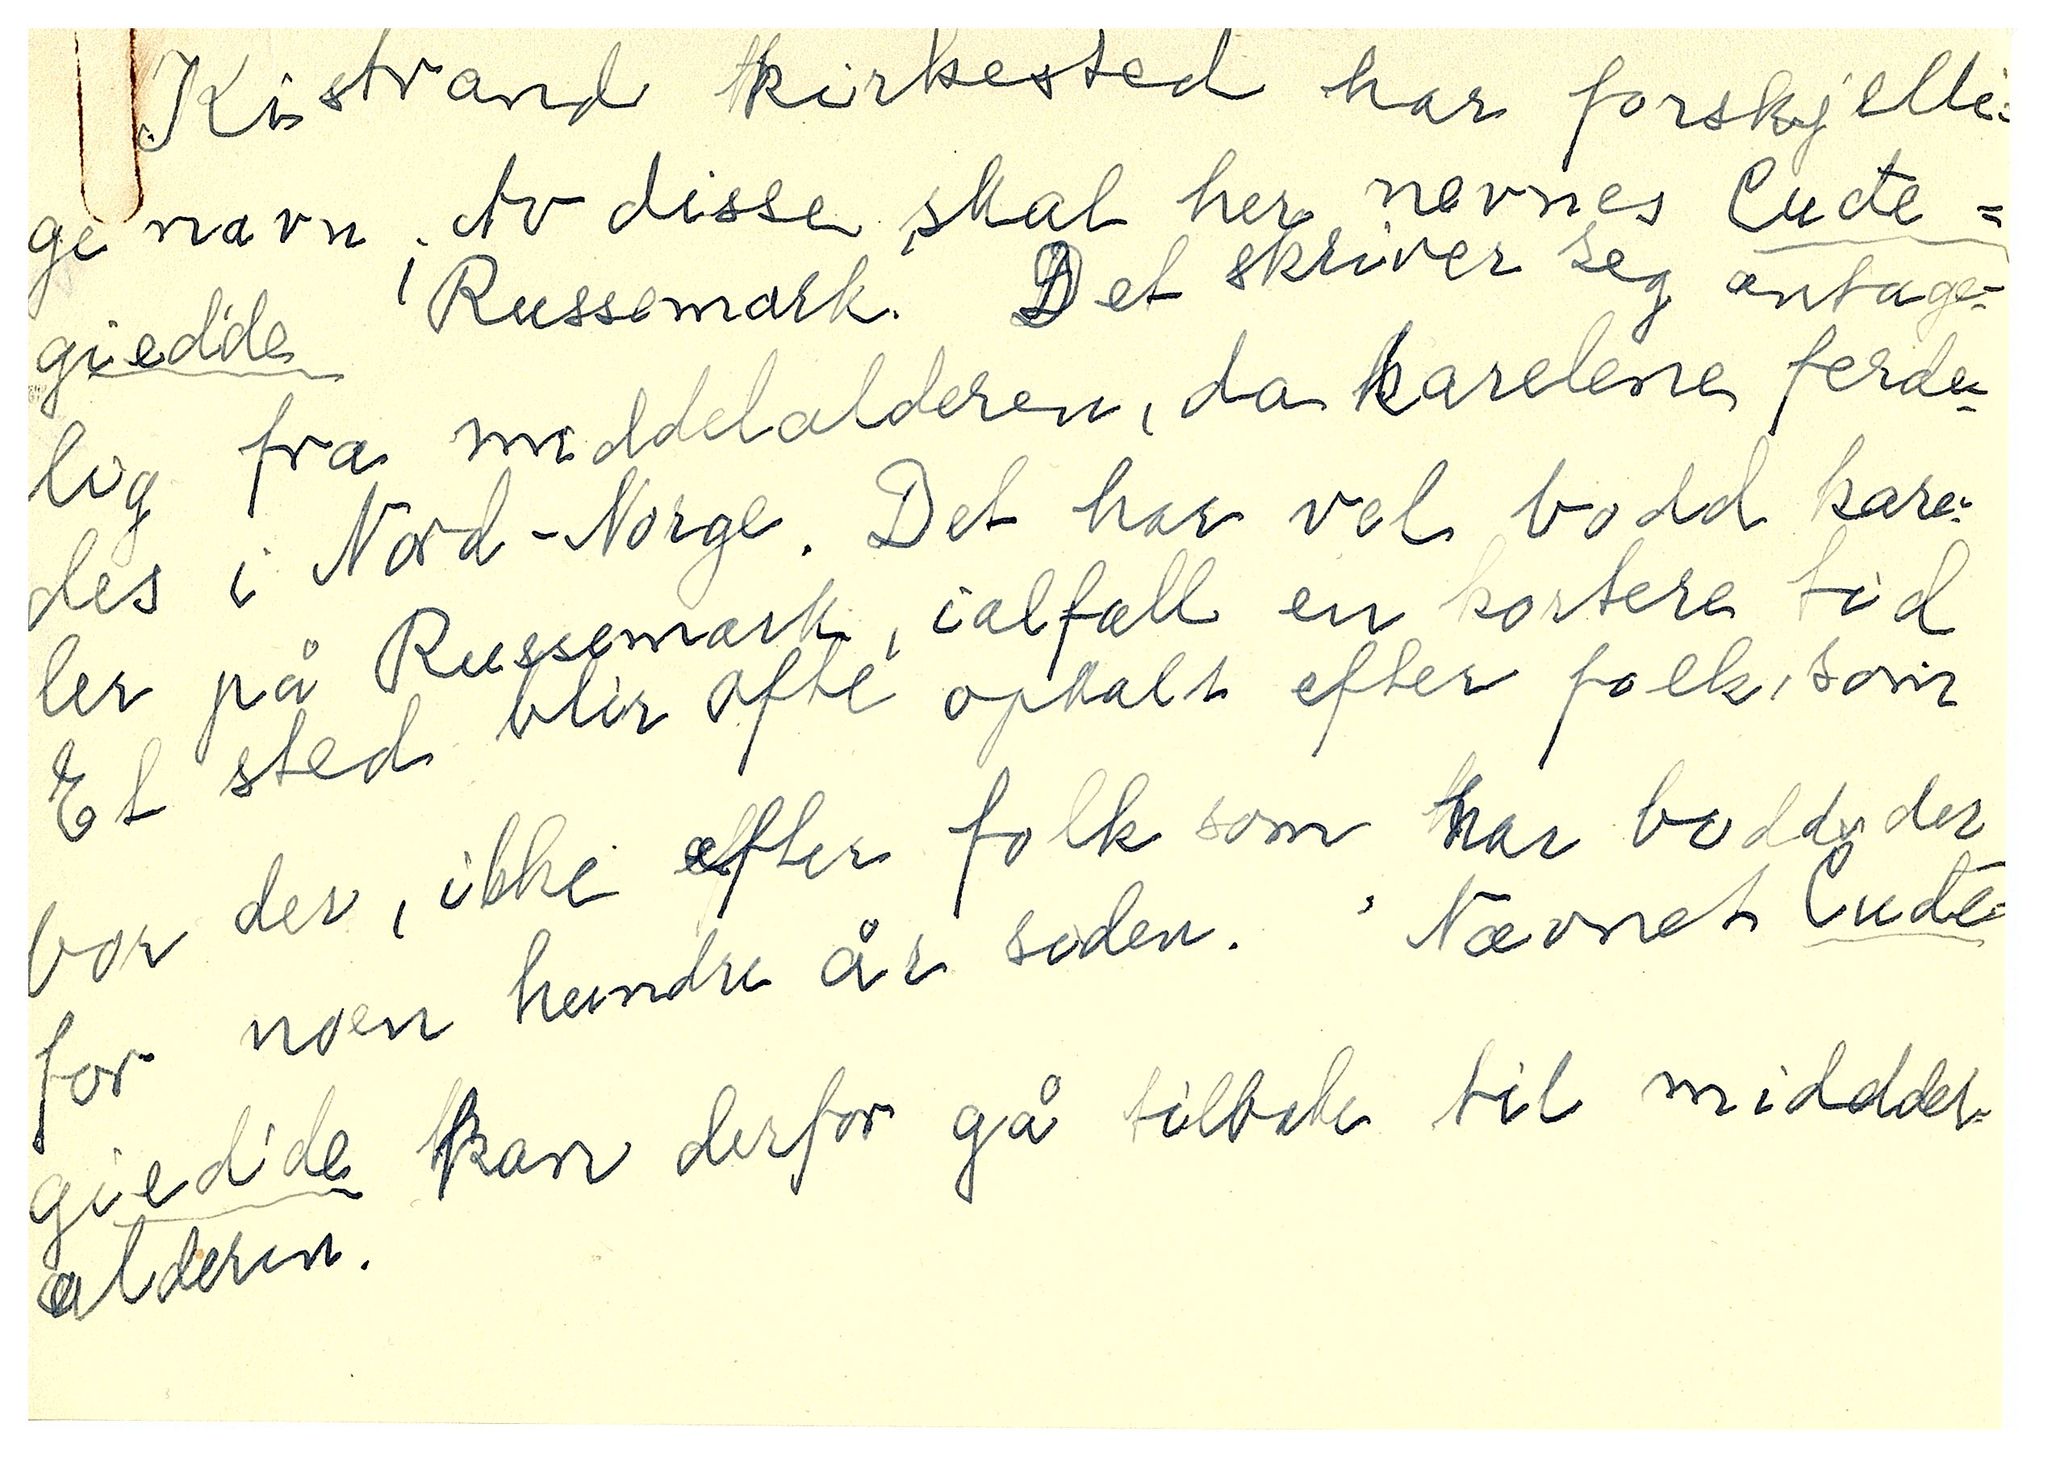 Kistrand kirkested har forskjelli-
ge navn; Av disse skal her nevnes Cude-
giedde Russemark. Det skriver seg antage-
lig fra middelalderen, da karelene ferde-
des i Nord-Norge. Det har vel bodd kare-
ler på Russemark, ialfall en kortere tid
Et sted blir ofte opkalt efter folk, som
bor der, ikke efter folk som har bodd der
for noen hundre år siden. Nævnet Cude-
giedde kan derfor gå tilbake til middel-
alderen.